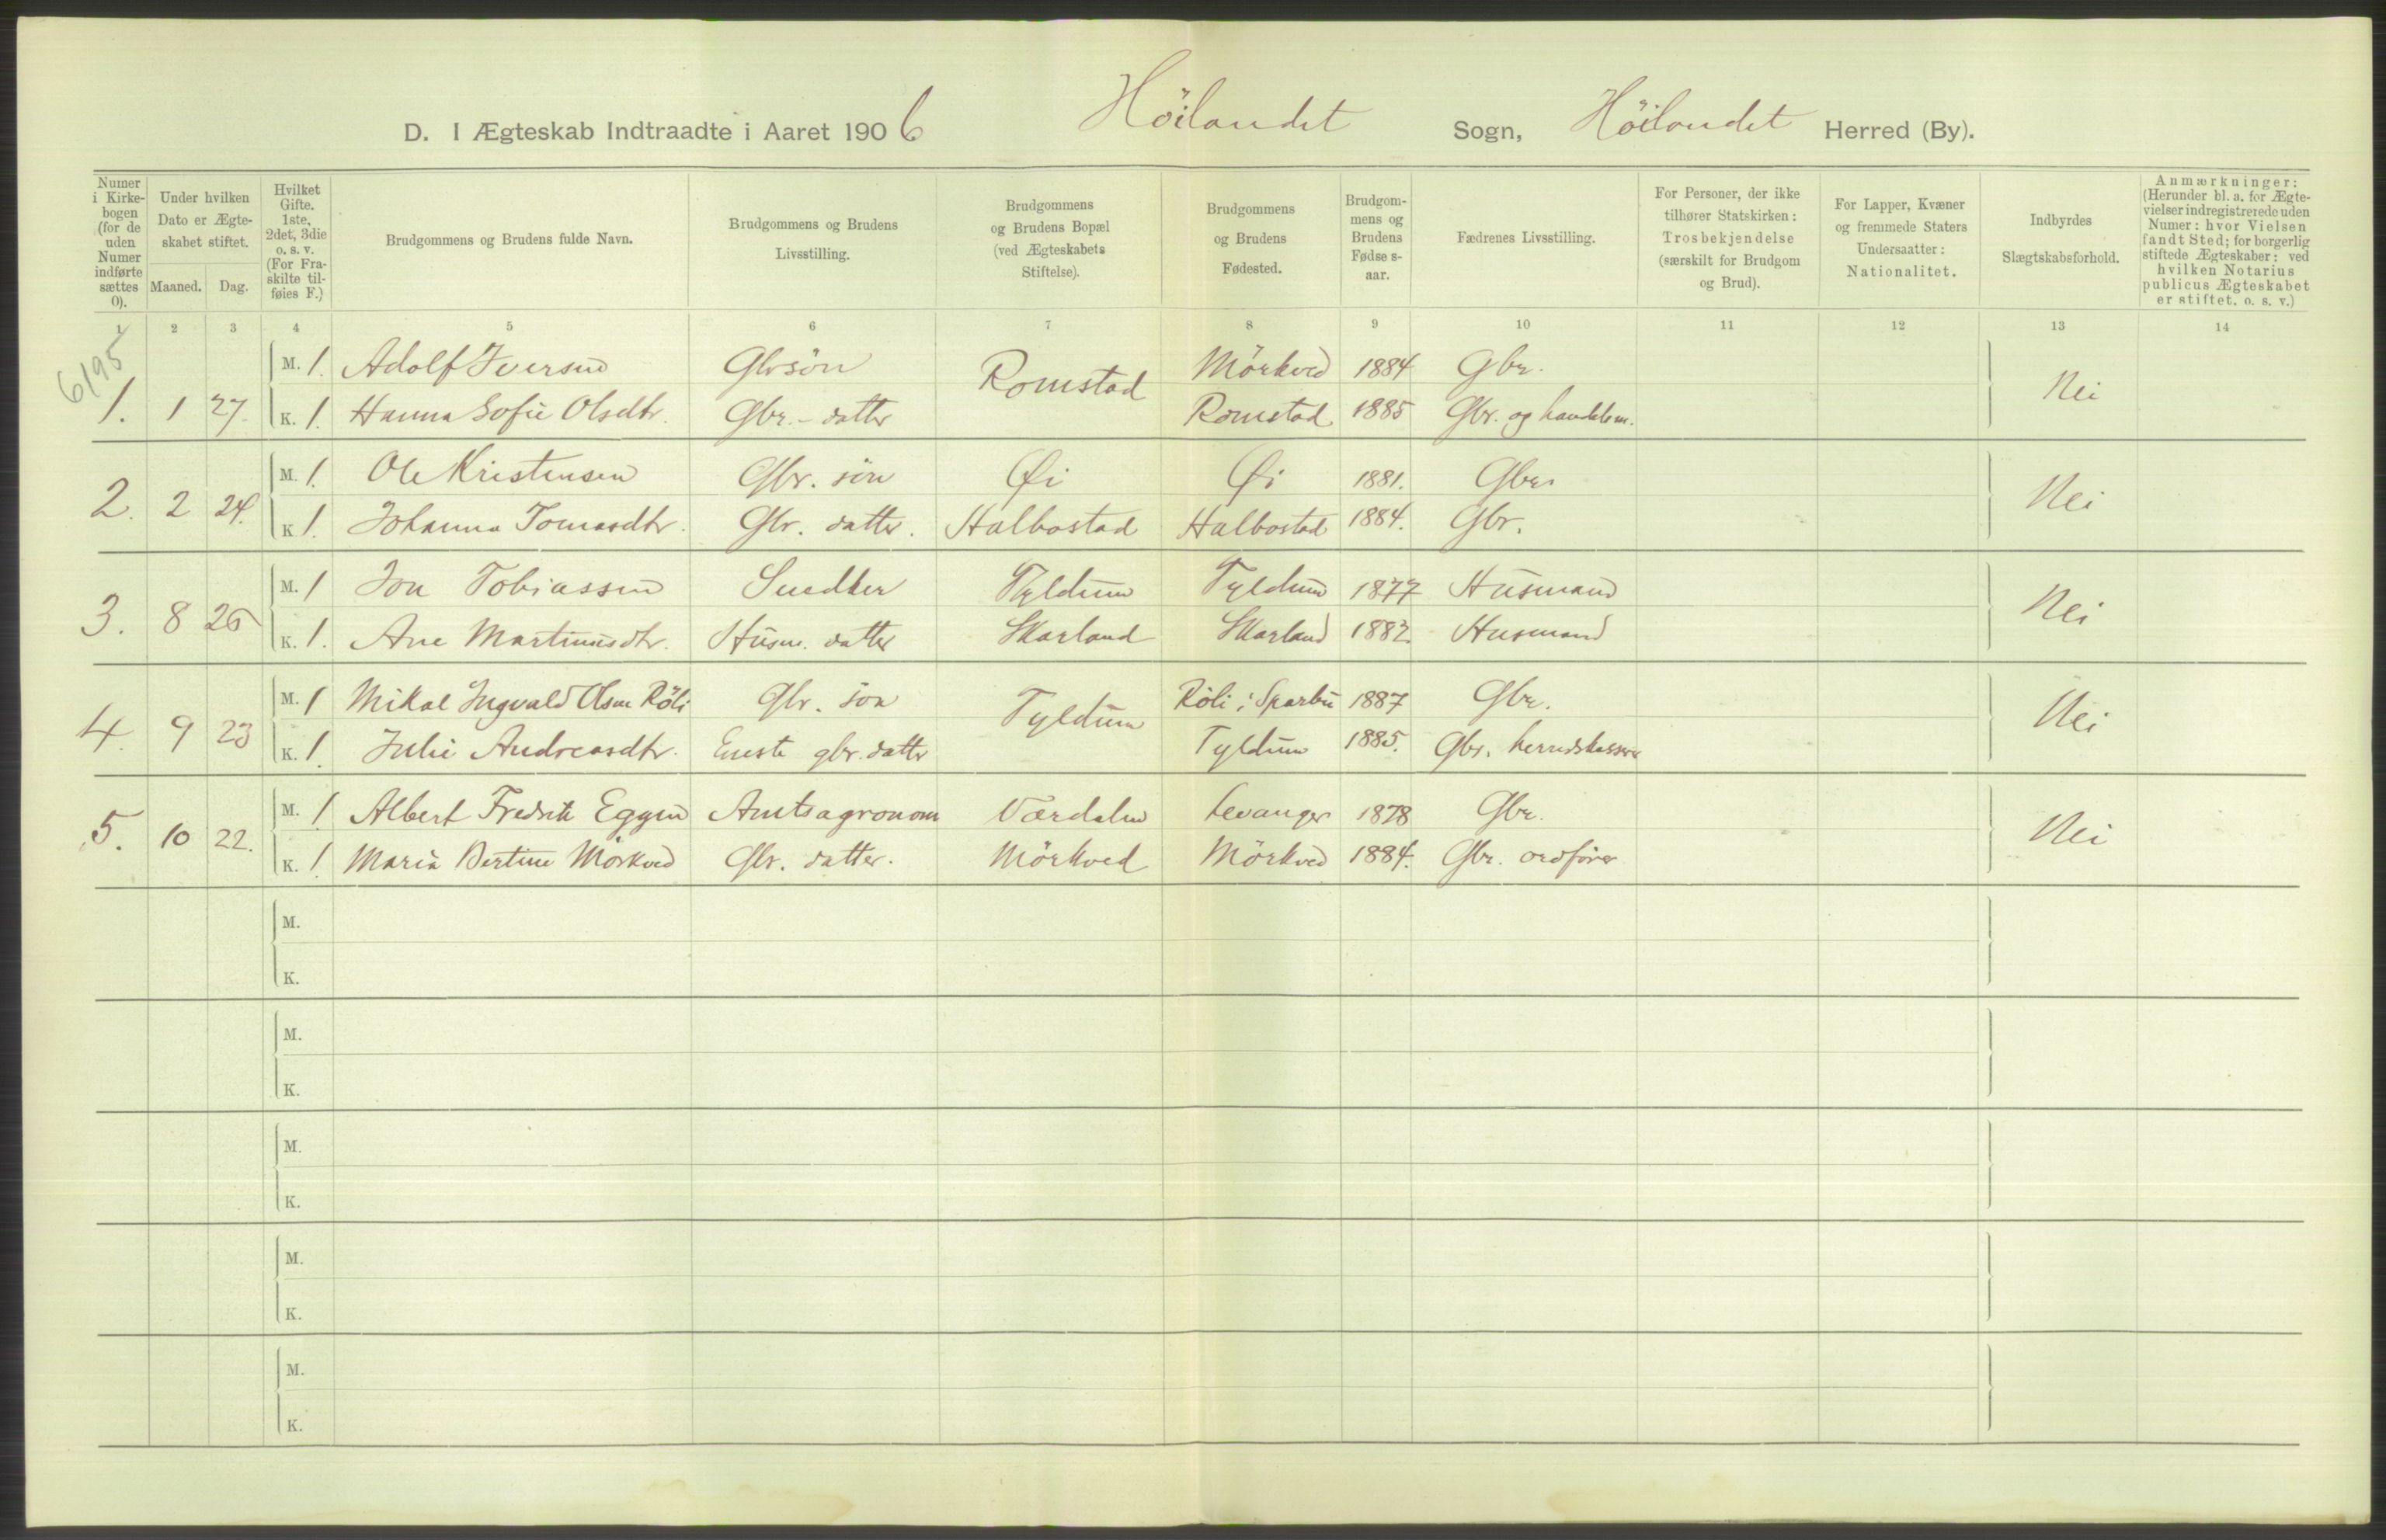 D. I Ægteskab Indtraadte i Aaret 1906 Höilandet Sogn, Höilandet Herred (By).
Numer i Kirke-bogen (for de uden Numer indførte sættes 0).
Under hvilken Dato er Ægte-skabet stiftet.
Maaned. Dag.
Hvilket Gifte. 1ste, 2det, 3die o. s. v. (For Fra-skilte til-føies F.)
Brudgommens og Brudens fulde Navn.
Brudgommens og Brudens Livsstilling.
Brudgommens og Brudens Bopæl (ved Ægteskabets Stiftelse).
Brudgommens og Brudens Fødested.
Brudgom-mens og Brudens Fødses-aar.
Fædrenes Livsstilling.
For Personer, der ikke tilhører Statskirken: Trosbekjendelse (særskilt for Brudgom og Brud).
For Lapper, Kvæner og fremmede Staters Undersaatter: Nationalitet.
Indbyrdes Slægtskabsforhold.
Anmærkninger: (Herunder bl. a. for Ægte-vielser indregistrerede uden Numer: hvor Vielsen fandt Sted; for borgerlig stiftede Ægteskaber: ved hvilken Notarius publicus Ægteskabet er stiftet. o. s. v.)
1 2 3 4 5 6 7 8 9 10 11 12 13 14
6195
M. 1. Adolf Iversen Gbrsön Romstad Mörkved 1884 Gbr.
1. 1 27. K. 1. Hanna Sofie Olsdtr. Gbr.-datter Romstad 1885 Gbr. og handelsm. Nei
M. 1. Ole Kristensen Gbr. sön Øi Øi 1881. Gbr.
2. 2 24. K. 1. Johanna Tomasdtr. Gbr. datter. Halbostad Halbostad 1884. Gbr. Nei
M. 1 Jon Tobiassen Snedker Tyldum Tyldum 1877 Husmand
3. 8 26 K. 1. Ane Martinusdtr. Husm. datter Skarland Skarland 1882. Husmand Nei
M. 1 Mikal Ingvald Olsen Röli Gbr. sön Tyldum Röli i Sparbu 1887 Gbr.
4. 9 23 K. 1. Julie Andreasdtr. Eneste gbr. datter Tyldum 1885. Gbr. herredskasserer Nei
M. 1 Albert Fredrik Eggen Amtsagronom Værdalen Levanger 1878 Gbr.
5. 10 22. K. 1. Maria Bertine Mörkved Gbr. datter. Mörkved Mörkved 1884. Gbr. ordfører Nei
M.
K.
M.
K.
M.
K.
M.
K.
M.
K.